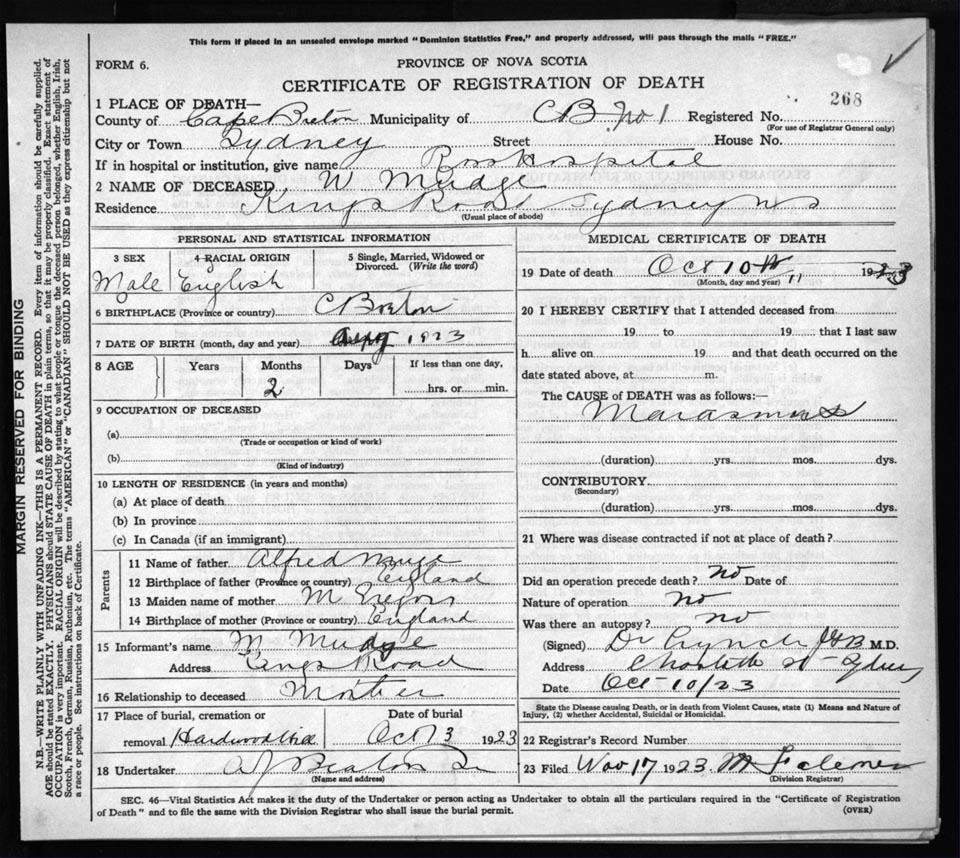 This form if placed in an unsealed envelope marked "Dominion Statistics Free," and properly addressed, will pass through the mails "FREE."
FORM 6.
PROVINCE OF NOVA SCOTIA
CERTIFICATE OF REGISTRATION OF DEATH
268
1 PLACE OF DEATH—
County of Cape Breton Municipality of CB No 1 Registered No.
(For use of Registrar General only)
City or Town Sydney Street House No.
If in hospital or institution, give name Ross Hospital
2 NAME OF DECEASED W Mudge
Residence Kings Road Sydney NS
(Usual place of abode)
PERSONAL AND STATISTICAL INFORMATION
3 SEX 4 RACIAL ORIGIN 5 Single, Married, Widowed or Divorced. (Write the word)
Male English
6 BIRTHPLACE (Province or country) C Breton
7 DATE OF BIRTH (month, day and year) 1923
8 AGE Years Months Days If less than one day,
2 hrs. or min.
9 OCCUPATION OF DECEASED
(a)
(Trade or occupation or kind of work)
(b)
(Kind of industry)
10 LENGTH OF RESIDENCE (in years and months)
(a) At place of death
(b) In province
(c) In Canada (if an immigrant)
Parents
11 Name of father Alfred
12 Birthplace of father (Province or country) England
13 Maiden name of mother M
14 Birthplace of mother (Province or country) England
15 Informant's name M Mudge
Address Kings Road
16 Relationship to deceased Mother
17 Place of burial, cremation or removal Hardwood Hill
Date of burial Oct 13 1923
18 Undertaker A J Beaton
(Name and address)
MEDICAL CERTIFICATE OF DEATH
19 Date of death Oct 10th " 1923
(Month, day and year)
20 I HEREBY CERTIFY that I attended deceased from
19 to 19 that I last saw
h alive on 19 and that death occurred on the
date stated above, at m.
The CAUSE of DEATH was as follows:
Marasmus
(duration) yrs. mos. dys.
CONTRIBUTORY
(Secondary)
(duration) yrs. mos. dys.
21 Where was disease contracted if not at place of death?
Did an operation precede death? no Date of
Nature of operation no
Was there an autopsy? no
(Signed) Dr Lynch M.D.
Address Charlotte St Sydney
Date Oct 10/23
State the Disease causing Death, or in death from Violent Causes, state (1) Means and Nature of Injury, (2) whether Accidental, Suicidal or Homicidal.
22 Registrar's Record Number
23 Filed Nov 17 1923. M
(Division Registrar)
SEC. 46—Vital Statistics Act makes it the duty of the Undertaker or person acting as Undertaker to obtain all the particulars required in the "Certificate of Registration
of Death" and to file the same with the Division Registrar who shall issue the burial permit. (OVER)
MARGIN RESERVED FOR BINDING
N.B.—WRITE PLAINLY WITH UNFADING INK—THIS IS A PERMANENT RECORD. Every item of information should be carefully supplied.
AGE should be stated EXACTLY. PHYSICIANS should STATE CAUSE OF DEATH in plain terms, so that it may be properly classified. Exact statement of
OCCUPATION is very important. RACIAL ORIGIN will be described by stating to what people or tongue the deceased person belonged, whether English, Irish,
Scotch, French, German, Russian, Ruthenian, etc. The terms "AMERICAN" or "CANADIAN" SHOULD NOT BE USED as they express citizenship but not
a race or people. See instructions on back of Certificate.